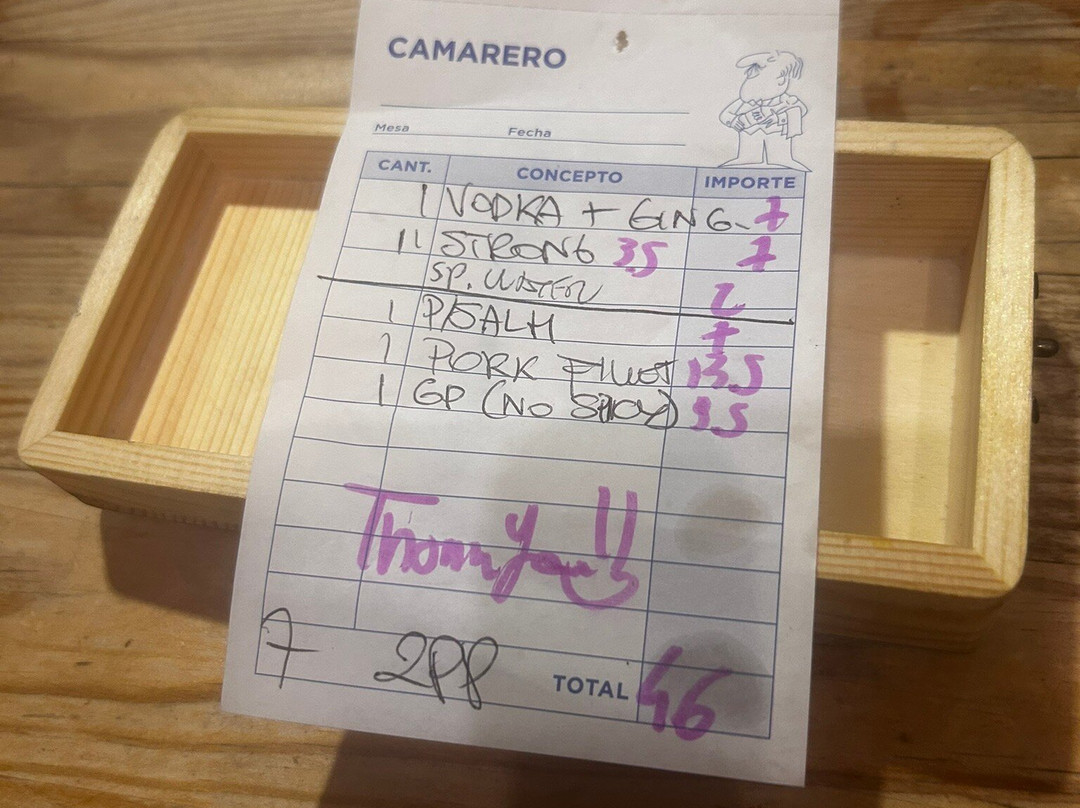 CAMARERO
Mesa Fecha
CANT. CONCEPTO IMPORTE
1 VODKA + GING. 7
11 STRONG 3,5 7
SP. WATER 2
1 P/SALH 7
1 PORK FILLET 13,5
1 GP (NO SPICY) 9,5
Thank you!!
7 2PP TOTAL 46